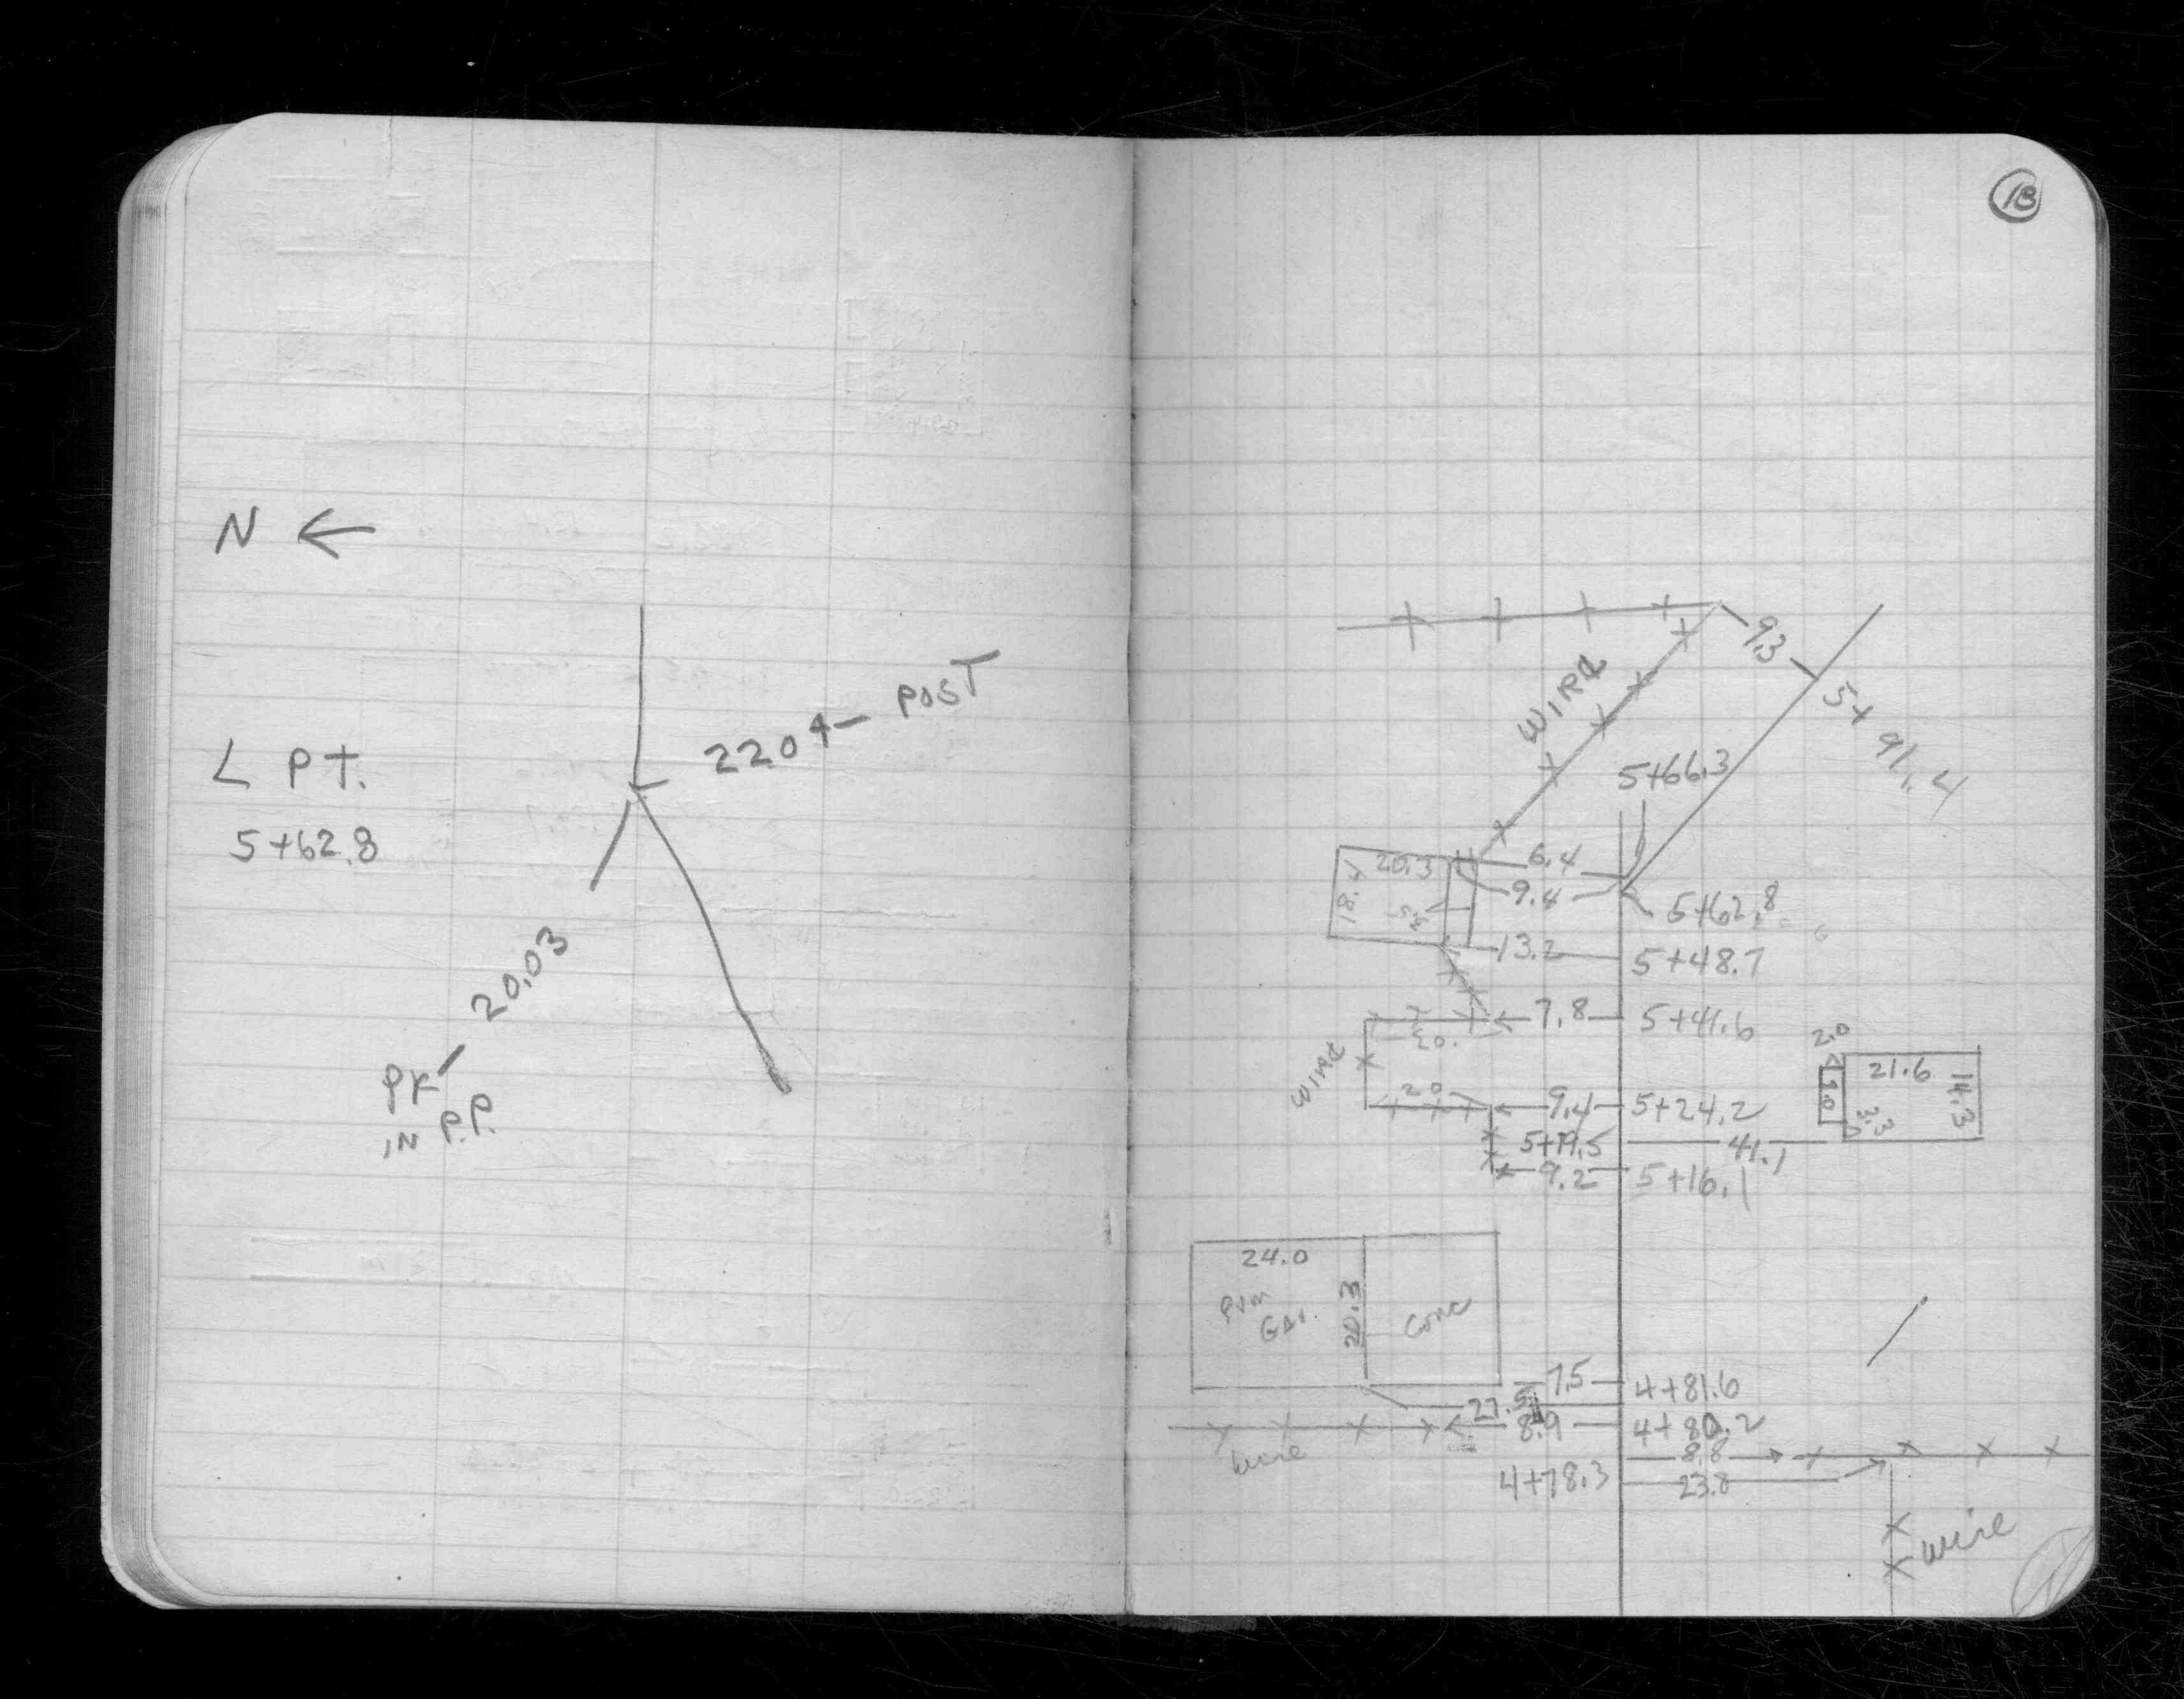 N ←
L PT.
5+62.8
2204 ← POST
20.03
PK
IN P.P.
18
9.3
WIRE
5+91.4
5+66.3
20.3
6.4
18.4
9.4
5+62.8
13.2
5+48.7
7.8
5+41.6
WIRE
20
9.4
5+24.2
2.0
21.6
14.3
3.3
5+19.5
41.1
9.2
5+16.1
24.0
20.3
Conc
7.5
4+81.6
27.5
8.9
4+80.2
wire
8.8
4+78.3
23.8
wire